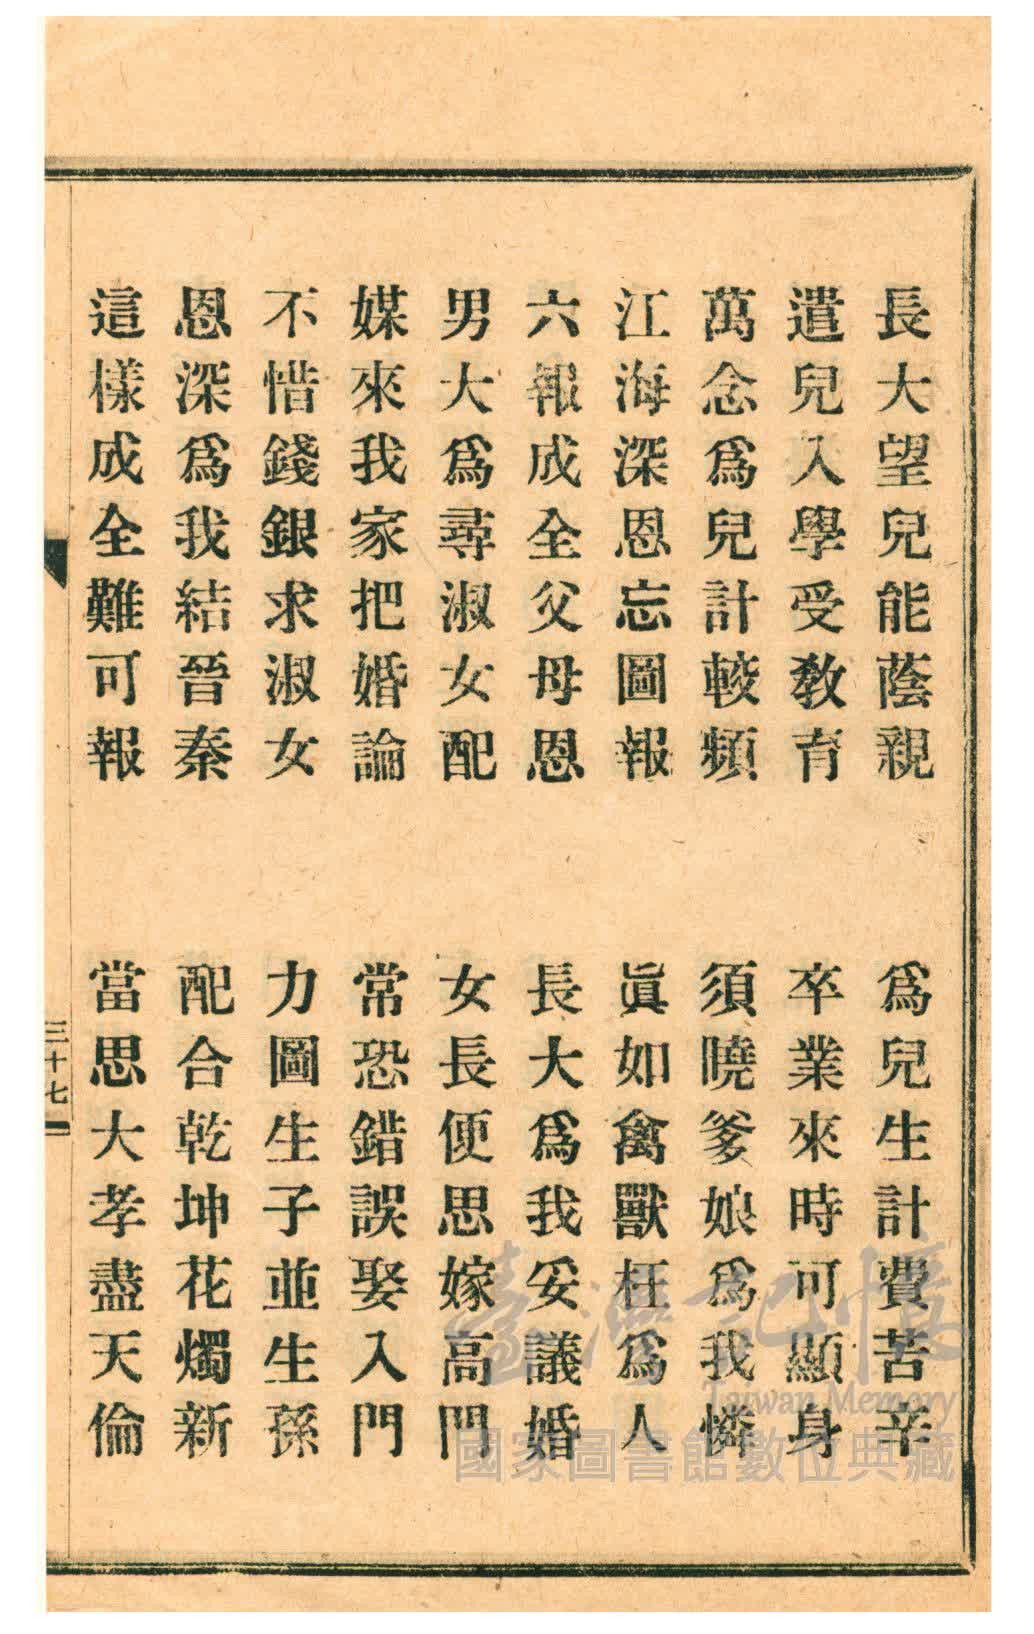 長大望兒能蔭親　爲兒生計費苦辛
遣兒入學受教育　卒業來時可顯身
萬念爲兒計較頻　須曉爹娘爲我憐
江海深恩忘圖報　眞如禽獸枉爲人
六報成全父母恩　長大爲我妥議婚
男大爲尋淑女配　女長便思嫁高門
媒來我家把婚論　常恐錯誤娶入門
不惜錢銀求淑女　力圖生子並生孫
恩深爲我結晉秦　配合乾坤花燭新
這樣成全難可報　當思大孝盡天倫
三十七
臺灣記憶
Taiwan Memory
國家圖書館數位典藏